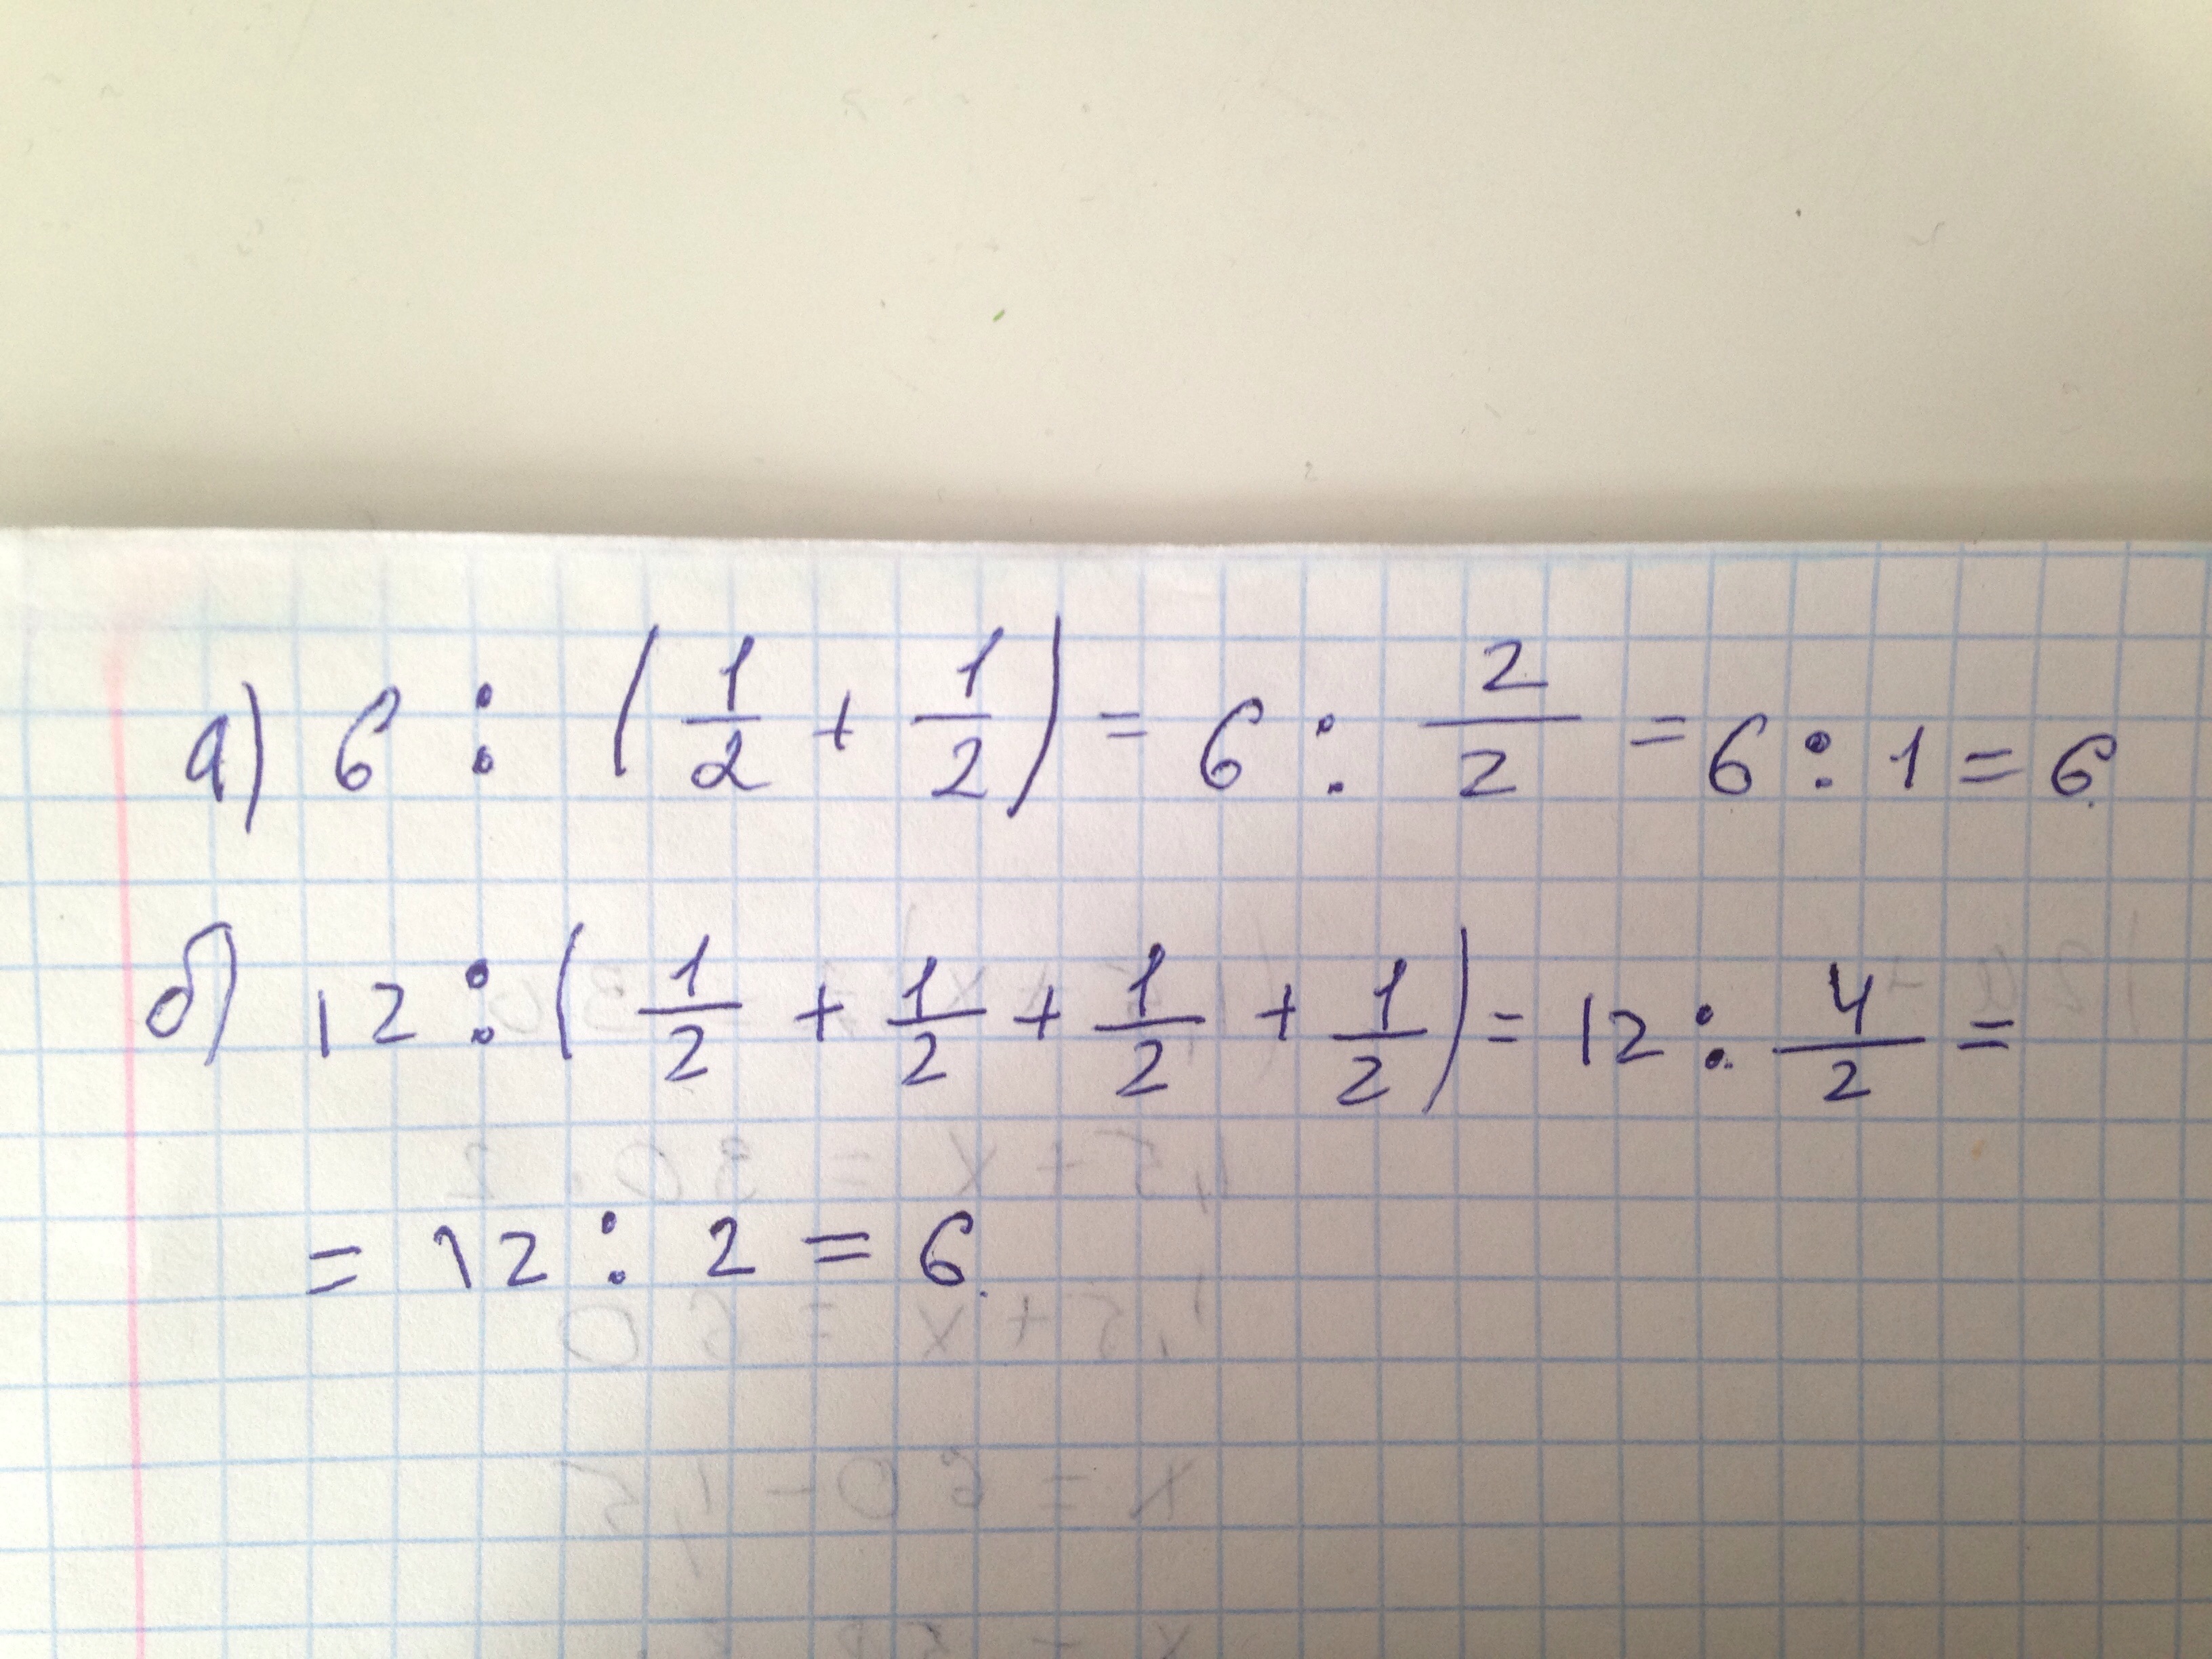 а) 6 : (1/2 + 1/2) = 6 : 2/2 = 6 : 1 = 6.
б) 12 : (1/2 + 1/2 + 1/2 + 1/2) = 12 : 4/2 =
= 12 : 2 = 6.